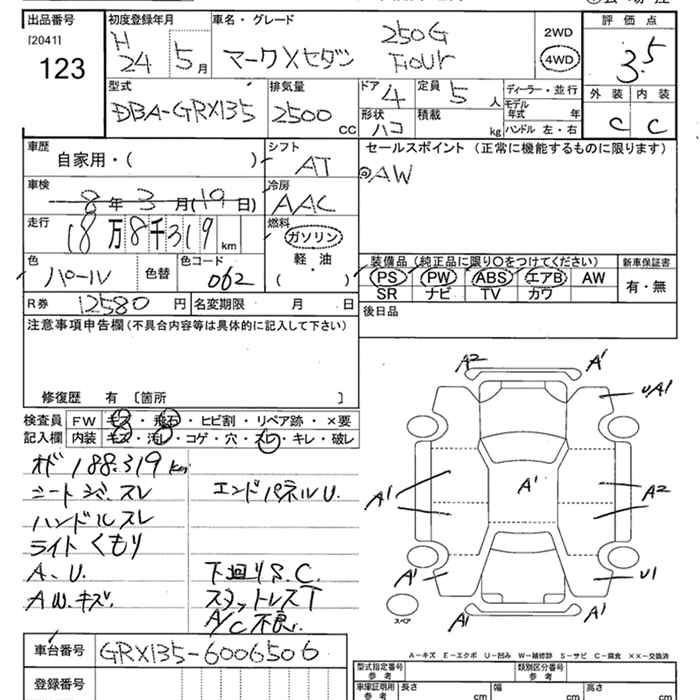 出品番号 初度登録年月 車名・グレード 評価点
[2041]
123
H
24 5 月
マークXセダン
250G
Four
2WD
4WD
3.5
型式
DBA-GRX135
排気量
2500
CC
ドア 4
定員 5 人
形状 ハコ
積載 kg
ディーラー・並行
モデル
年式 年
ハンドル 左・右
外装 内装
C C
車歴
自家用・( )
シフト
AT
セールスポイント (正常に機能するものに限ります)
◎AW
車検
8年 3月(19日)
冷房
AAC
走行
18万8千319
km
燃料
ガソリン
軽・油
( )
色
パール
色替
色コード
062
装備品 (純正品に限り○をつけてください)
新車保証書
PS PW ABS エアB AW
SR ナビ TV カワ
有・無
R券 12580 円 名変期限 月 日
後日品
注意事項申告欄(不具合内容等は具体的に記入して下さい)
修復歴 有 〔箇所 〕
検査員 FW キズ・飛石・ヒビ割・リペア跡・×要
記入欄 内装 キズ・汚レ・コゲ・穴・スレ・キレ・破レ
オド 188.319 km
シートジョースレ
エンドパネルU.
ハンドルスレ
ライトくもり
A、U.
下回りS.C.
AWキズ.
スタットレスT
A/C不良.
A2 A1
UA1
A1 A1 A2
A1 U1
A1 A1
スペア
A-キズ E-エクボ U-凹み W-補修跡 S-サビ C-腐食 ××-交換済
車台番号 GRX135-6006506
登録番号
型式指定番号
参考
類別区分番号
参考
車庫証明用
参考
長さ cm
幅 cm
高さ cm